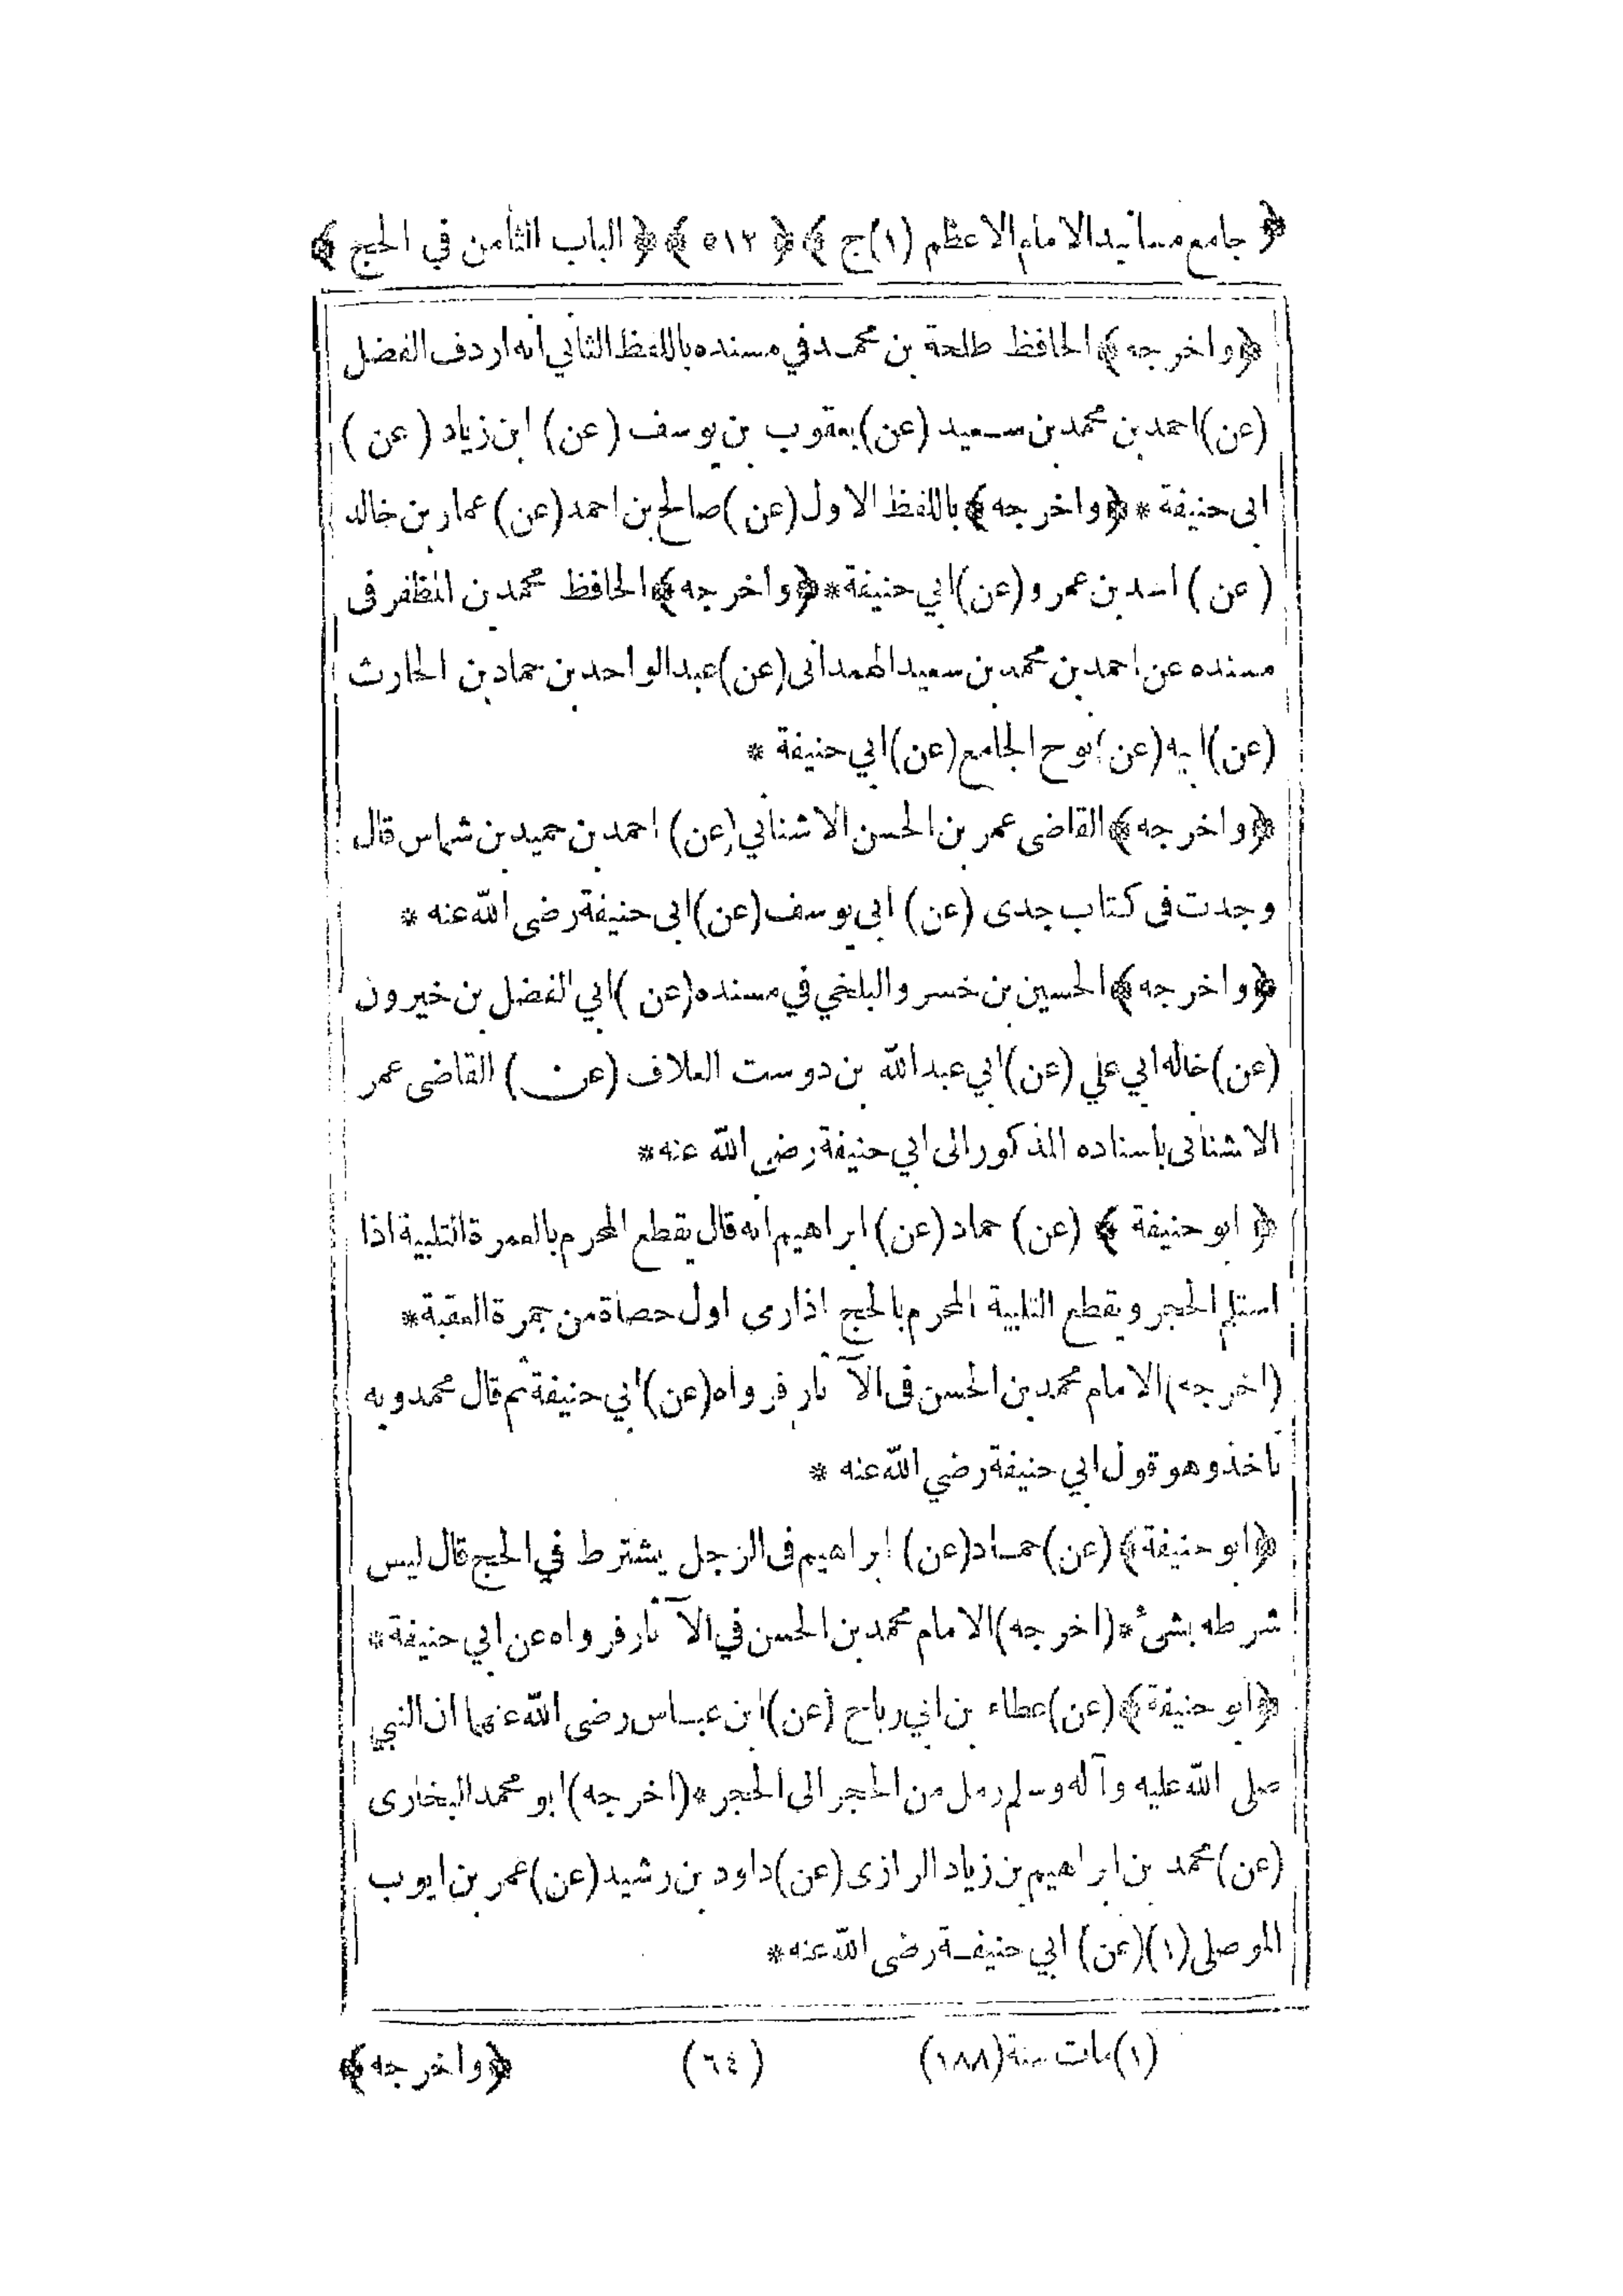 ﴿ جامع مسانيد الامام الاعظم (١)ج ﴾ ﴿ ٥١٢ ﴾ ﴿ الباب الثامن في الحج ﴾
﴿واخرجه﴾ الحافظ طلحة بن محمد في مسنده باللفظ الثاني انه اردف الفضل
(عن) احمد بن محمد بن سعيد (عن) يعقوب بن يوسف (عن) ابن زياد (عن)
ابى حنيفة * ﴿واخرجه﴾ باللفظ الاول (عن) صالح بن احمد (عن) عمار بن خالد
(عن) اسد بن عمرو (عن) ابي حنيفة * ﴿واخرجه﴾ الحافظ محمد بن المظفر فى
مسنده عن احمد بن محمد بن سعيد الهمدانى (عن) عبد الواحد بن حماد بن الحارث
(عن) ابيه (عن) نوح الجامع (عن) ابي حنيفة *
﴿واخرجه﴾ القاضى عمر بن الحسن الاشناني (عن) احمد بن حميد بن شماس قال
وجدت فى كتاب جدى (عن) ابى يوسف (عن) ابى حنيفة رضى الله عنه *
﴿واخرجه﴾ الحسين بن خسرو البلخي في مسنده (عن) ابي الفضل بن خيرون
(عن) خاله ابي علي (عن) ابي عبد الله بن دوست العلاف (عن) القاضى عمر
الاشنانى باسناده المذكور الى ابي حنيفة رضى الله عنه *
﴿ ابو حنيفة ﴾ (عن) حماد (عن) ابراهيم انه قال يقطع المحرم بالعمرة التلبية اذا
استلم الحجر ويقطع التلبية المحرم بالحج اذا رمى اول حصاة من جمرة العقبة *
(اخرجه) الامام محمد بن الحسن فى الآثار فرواه (عن) ابي حنيفة ثم قال محمد وبه
ناخذ وهو قول ابي حنيفة رضي الله عنه *
﴿ابو حنيفة﴾ (عن) حماد (عن) ابراهيم فى الرجل يشترط في الحج قال ليس
شرطه بشئ * (اخرجه) الامام محمد بن الحسن في الآثار فرواه عن ابي حنيفة *
﴿ابو حنيفة﴾ (عن) عطاء بن ابي رباح (عن) ابن عباس رضى الله عنهما ان النبي
صلى الله عليه وآله وسلم رمل من الحجر الى الحجر * (اخرجه) ابو محمد البخارى
(عن) محمد بن ابراهيم بن زياد الرازى (عن) داود بن رشيد (عن) عمر بن ايوب
الموصلى (١) (عن) ابي حنيفة رضى الله عنه *
(١) مات سنة (١٨٨) (٦٤) ﴿واخرجه﴾